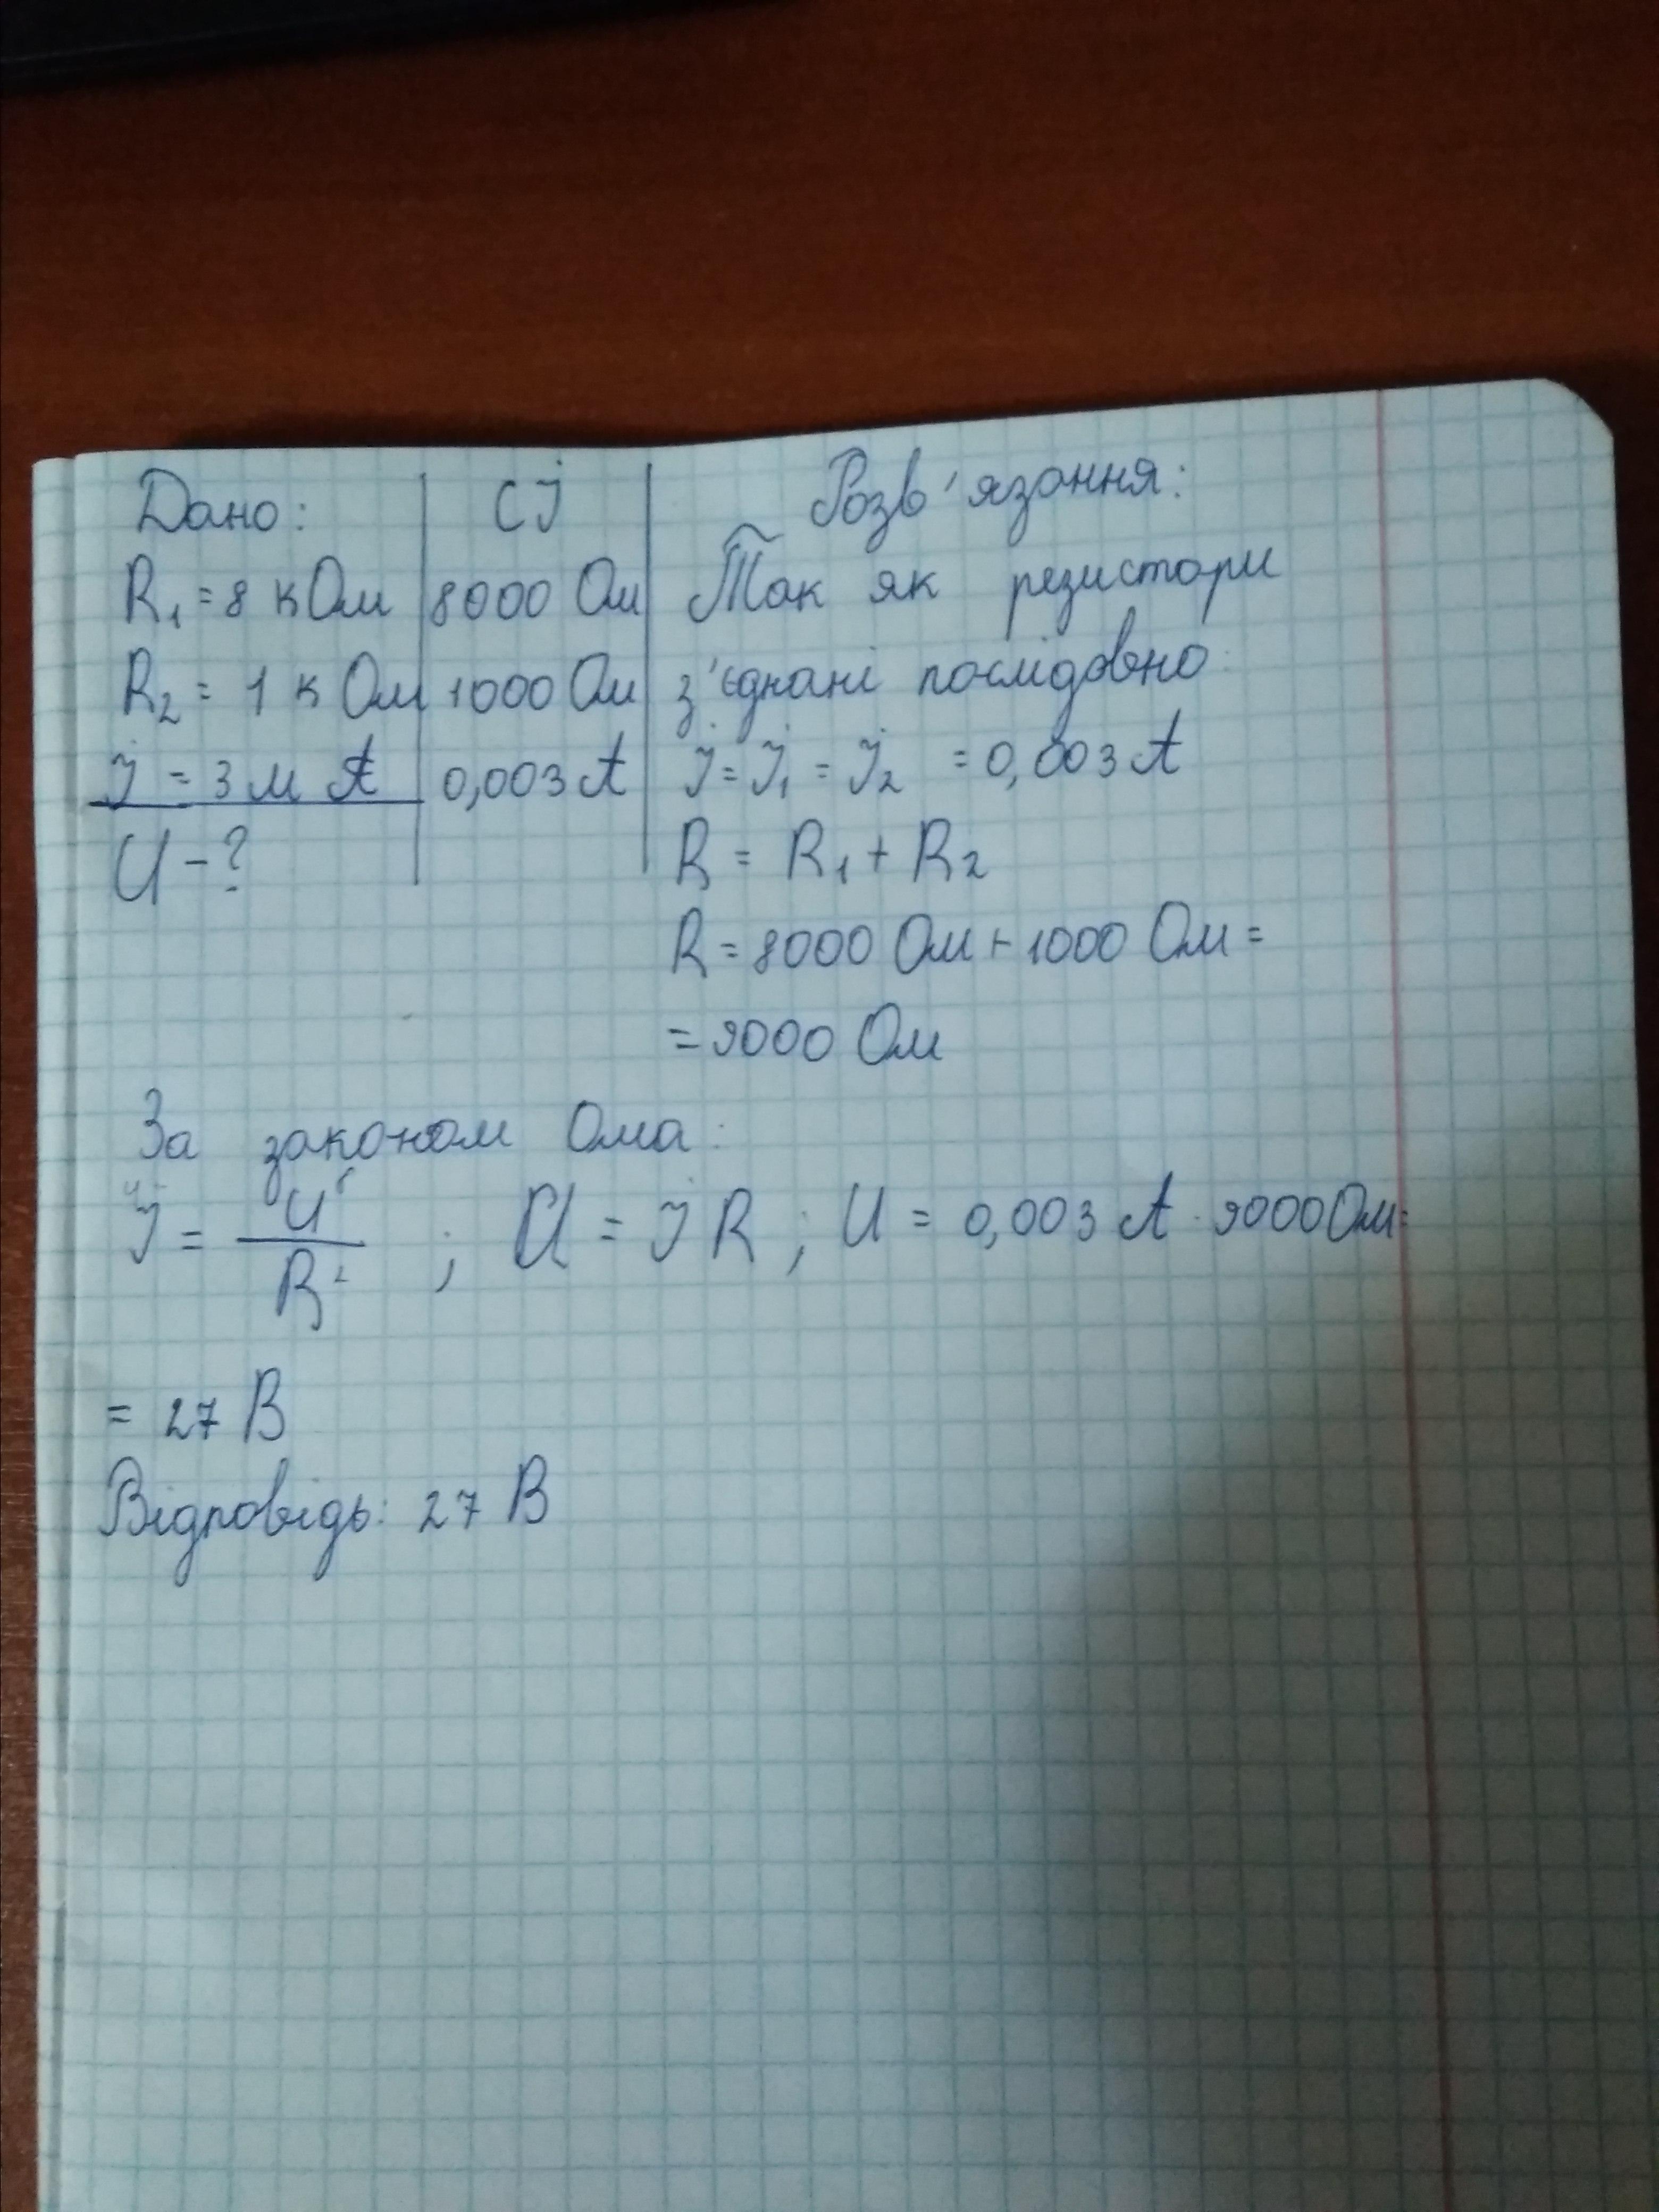 Дано: СІ Розв'язання:
R₁ = 8 кОм 8000 Ом Так як резистори
R₂ = 1 кОм 1000 Ом з'єднані послідовно:
I = 3 мА 0,003 А I = I₁ = I₂ = 0,003 А
U - ? R = R₁ + R₂
R = 8000 Ом + 1000 Ом =
= 9000 Ом
За законом Ома:
I = U/R ; U = IR ; U = 0,003 А · 9000 Ом =
= 27 В
Відповідь: 27 В